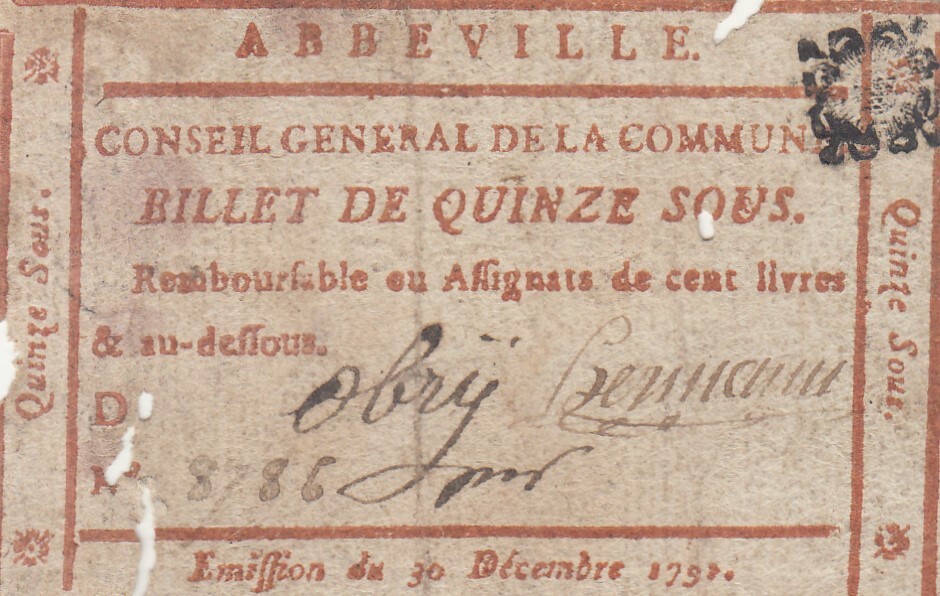 ABBEVILLE.
CONSEIL GENERAL DE LA COMMUN
BILLET DE QUINZE SOUS.
Remboursable en Assignats de cent livres
& au-dessous.
D
Obrÿ
Nº 8786
Emission du 30 Décembre 1791.
Quinze Sous.
Quinze Sous.